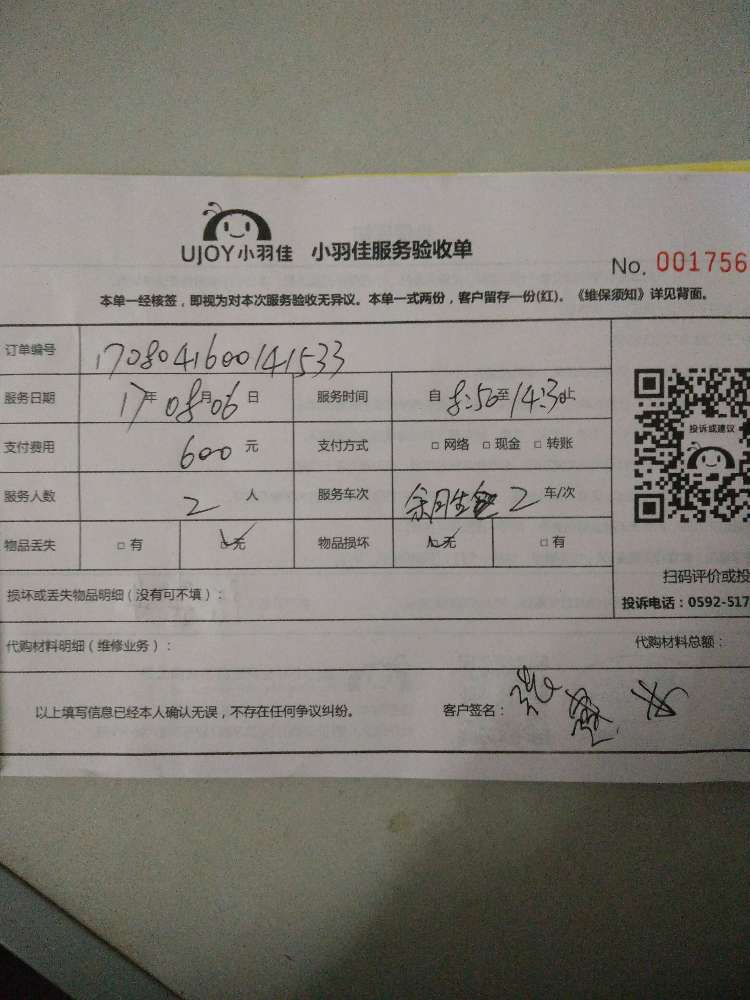 UJOY小羽佳 小羽佳服务验收单
No. 001756
本单一经核签，即视为对本次服务验收无异议。本单一式两份，客户留存一份(红)。《维保须知》详见背面。
订单编号 170804160014153​3
服务日期 17年08月06日 服务时间 自8:50至14:30止
支付费用 600元 支付方式 □网络 □现金 □转账
投诉或建议
服务人数 2人 服务车次 2车/次
物品丢失 □有 ☑无 物品损坏 ☑无 □有
扫码评价或投
损坏或丢失物品明细（没有可不填）：
投诉电话：0592-517
代购材料明细（维修业务）： 代购材料总额：
以上填写信息已经本人确认无误，不存在任何争议纠纷。 客户签名：